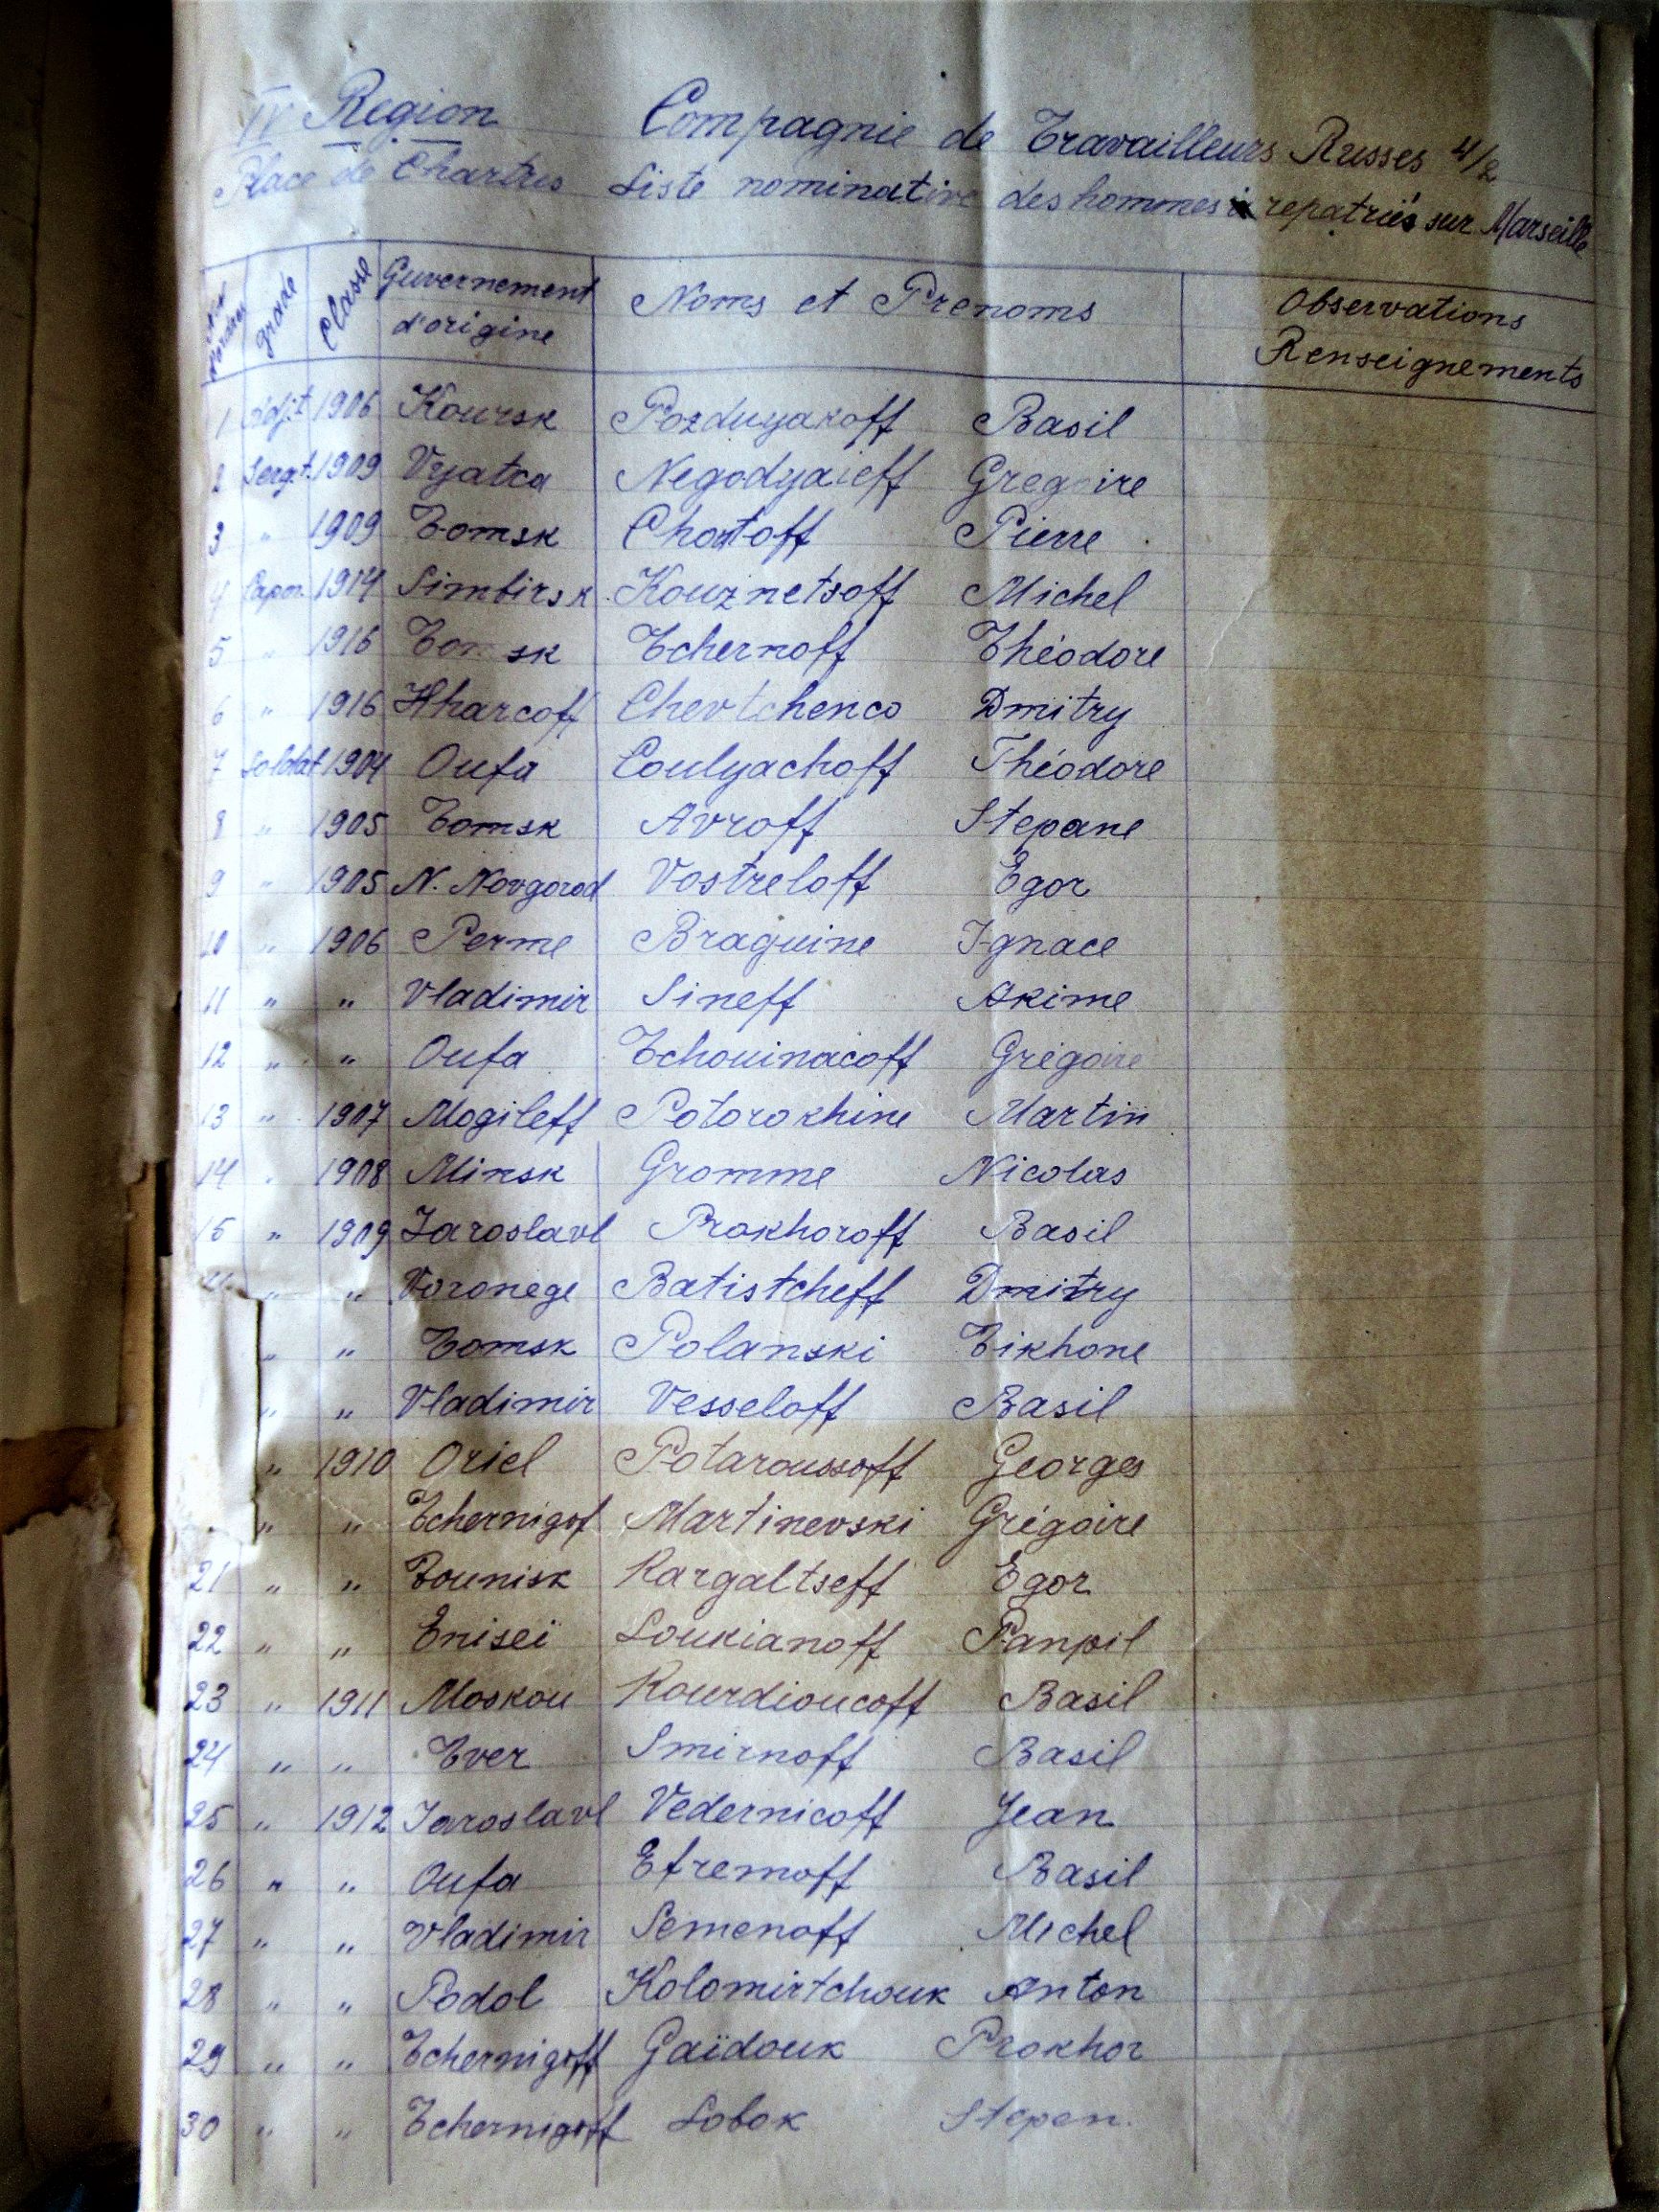 IV Region Compagnie de Travailleurs Russes 4/2
Place de Chartres Liste nominative des hommes repatriés sur Marseille
grade Classe Guvernement d'origine Noms et Prenoms Observations Renseignements
1 Adjt 1906 Koursk Pozduyakoff Basil
2 Sergt. 1909 Vyatca Negodyaieff Gregoire
3 " 1909 Tomsk Chatoff Pierre
4 Capor. 1914 Simbirsk Kouznetsoff Michel
5 " 1916 Tomsk Tchernoff Théodore
6 " 1916 Hharcoff Chevtchenco Dmitry
7 Soldat 1904 Oufa Coulyachoff Théodore
8 " 1905 Tomsk Avroff Stepane
9 " 1905 N. Novgorod Vostreloff Egor
10 " 1906 Perme Braguine Ignace
11 " " Vladimir Sineff Akime
12 " " Oufa Tchouinacoff Grégoire
13 " 1907 Mogileff Potorokhine Martin
14 " 1908 Minsk Gromme Nicolas
15 " 1909 Iaroslavl Prokhoroff Basil
" " Voronege Batistcheff Dmitry
" " Tomsk Polanski Tikhone
" " Vladimir Vesseloff Basil
" 1910 Oriel Potaroussoff Georges
" " Tchernigof Martinevski Grégoire
21 " " Tounisk Kargaltseff Egor
22 " " Eniseï Loukianoff Panpil
23 " 1911 Moskou Kourdioucoff Basil
24 " " Tver Smirnoff Basil
25 " 1912 Iaroslavl Vedernicoff Jean
26 " " Oufa Efremoff Basil
27 " " Vladimir Semenoff Michel
28 " " Podol Kolomirtchouk Anton
29 " " Tchernigoff Gaïdouk Prokhor
30 " " Tchernigoff Lobok Stepen.